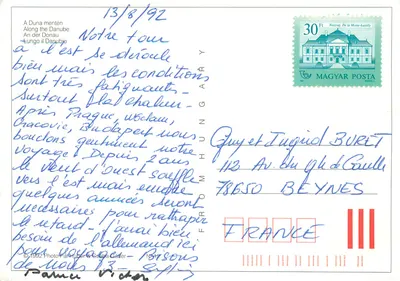 13/8/92
A Duna mentén
Along the Danube
An der Donau
Lungo il Danubio
Notre tour
à l'est se déroule
bien mais les conditions
sont très fatigantes -
surtout la chaleur.
Après Prague,
Cracovie, Budapest nous
bouclons gentiment notre
voyage. Depuis 2 ans
le vent d'ouest souffle
vers l'est mais encore
quelques années seront
nécessaires pour rattraper
le retard. J'avais bien
besoin de l'allemand ici
pour voyager. Bisous
de nous
FROM HUNGARY
30 Ft
MAGYAR POSTA
Guy et Ingrid BURET
112 Av. du gle de Gaulle
78650 BEYNES
FRANCE